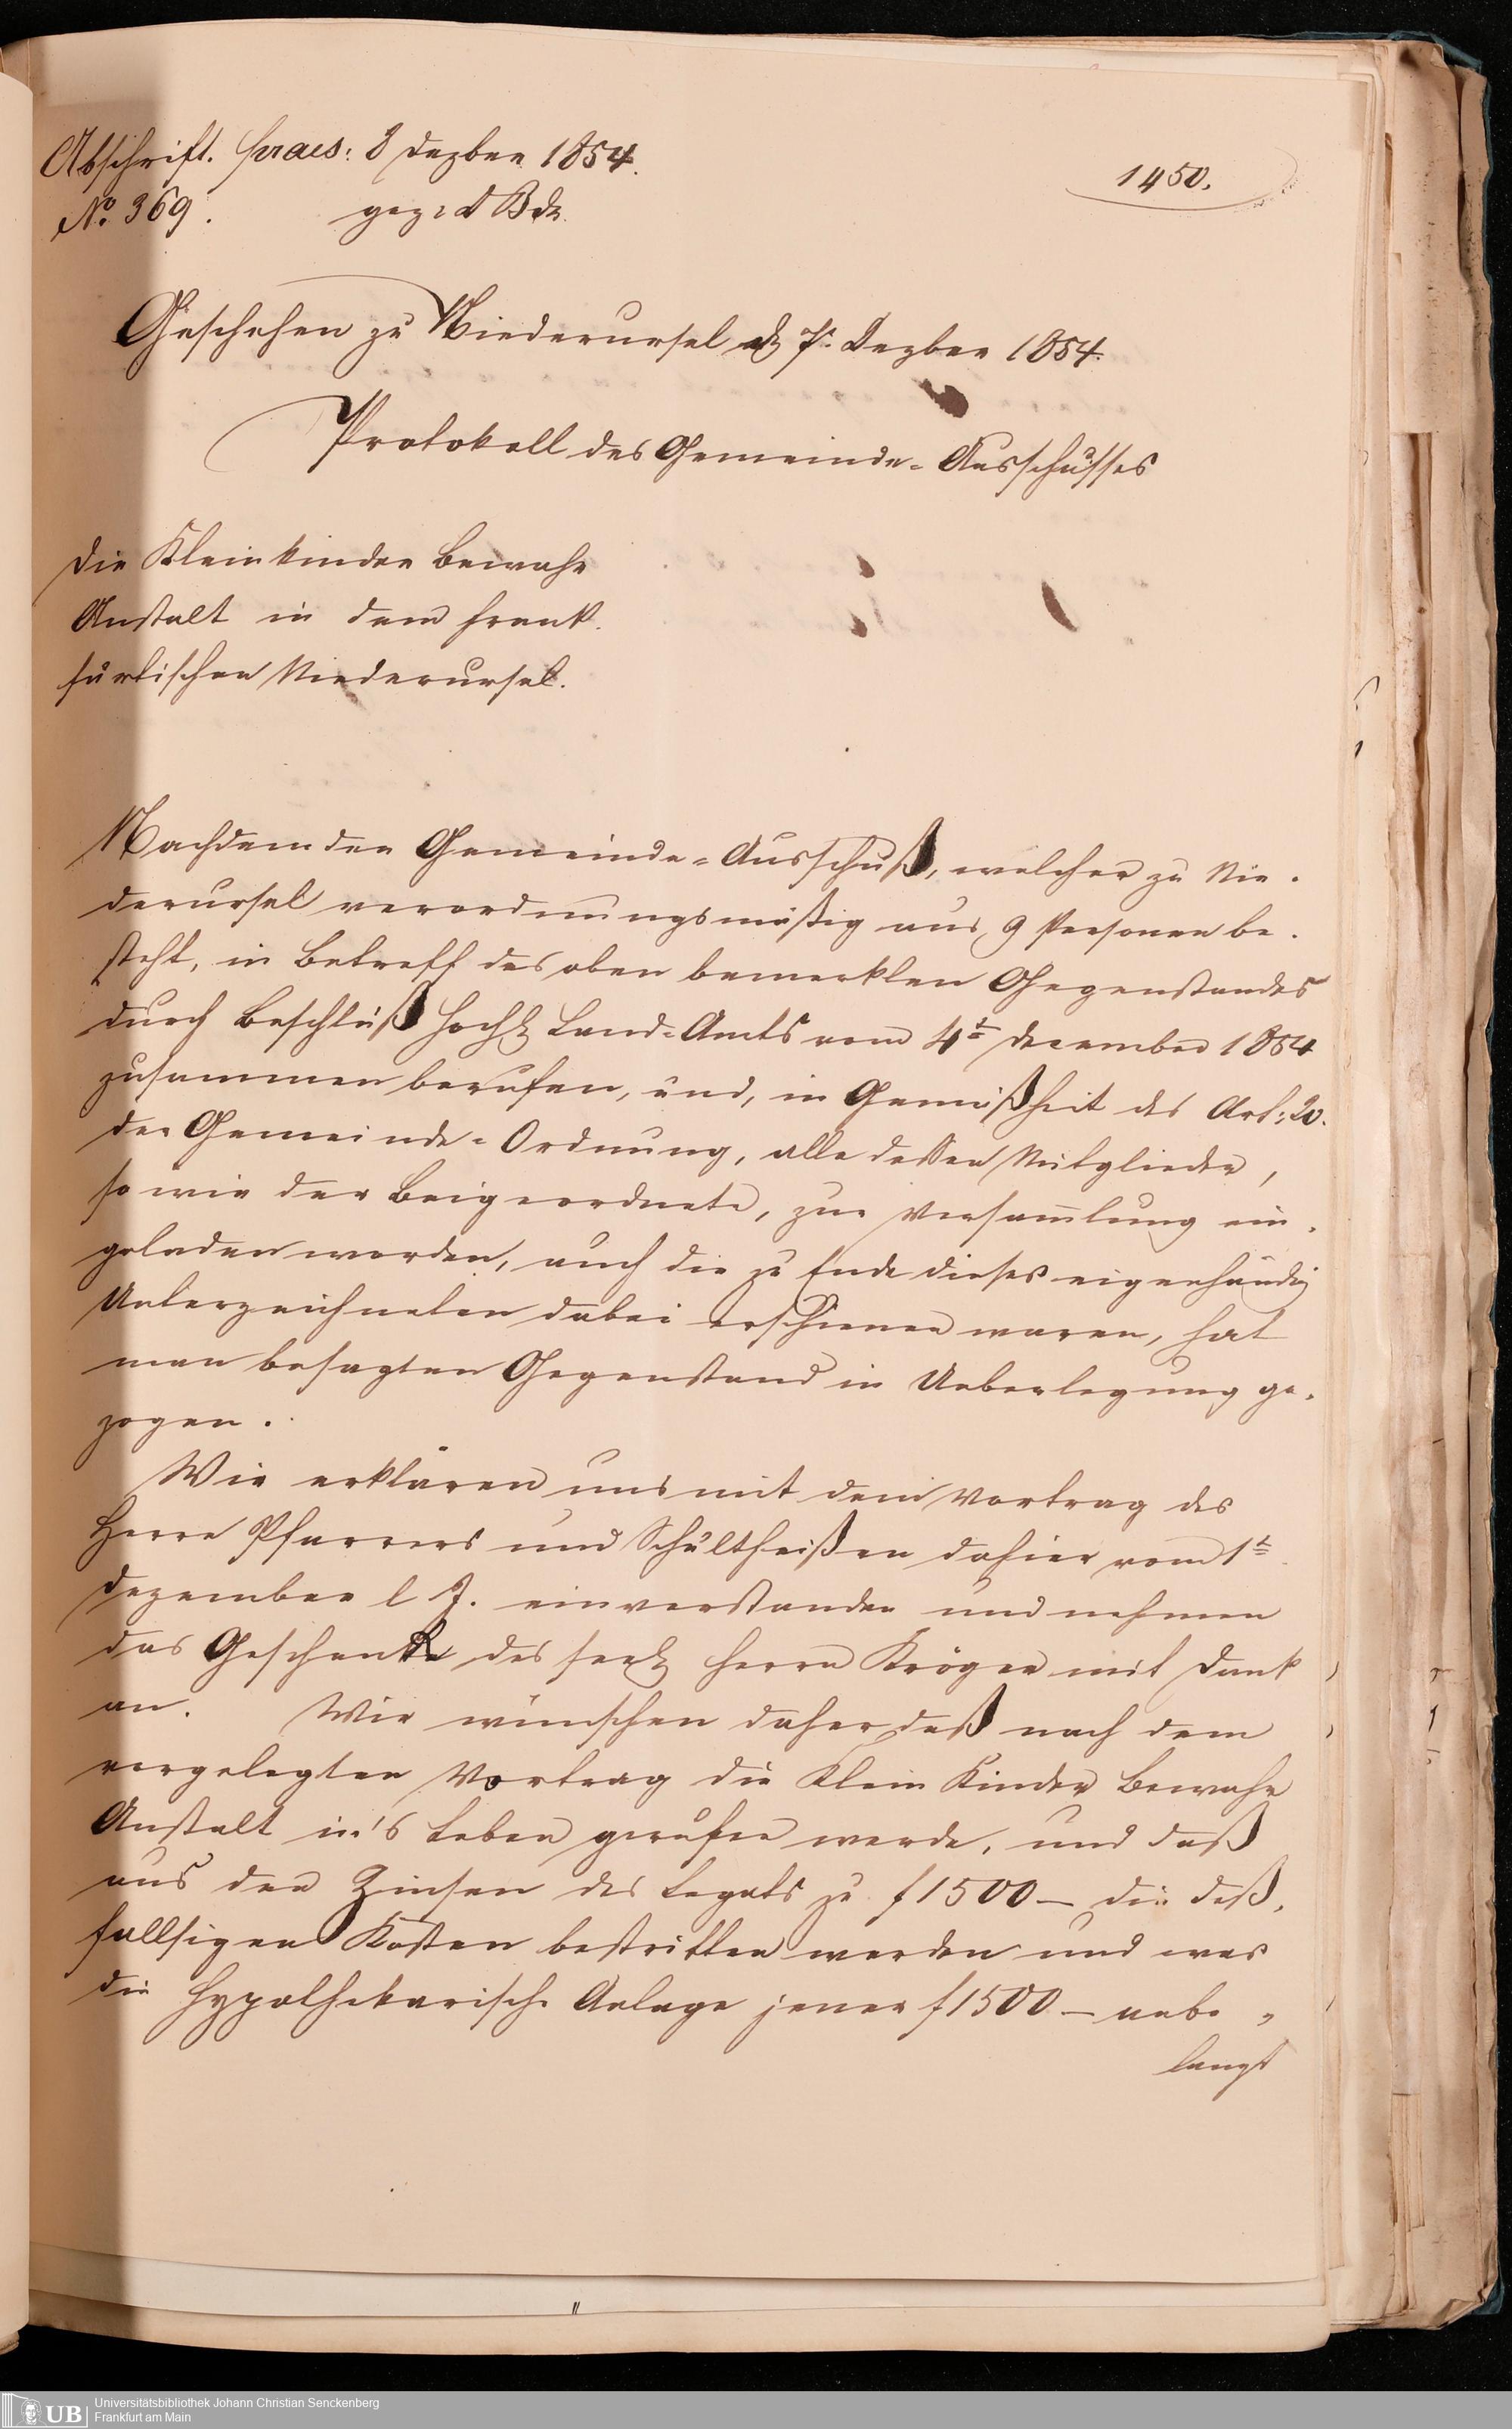 Abschrift. praes: 8 Dezber 1854.
1450.
No. 369. gez:
Geschehen zu Niederursel d 7t. Dezber 1854.
Protokoll des Gemeinde-Ausschusses
Die Kleinkinder Bewahr
Anstalt in dem frank.
furtischen Niederursel.
Nachdem der Gemeinde-Ausschuß, welcher zu Nie.
derursel verordnungsmäßig aus 9 Personen be.
steht, in Betreff des oben bemerkten Gegenstandes
durch Beschluß Hochl Land-Amts vom 4t December 1854
zusammen berufen, und, in Gemäßheit des Art: 20.
der Gemeinde-Ordnung, alle dessen Mitglieder,
so wie der Beigeordnete, zur Versam̄lung ein.
geladen worden, auch die zu Ende dieses eigenhändig
Unterzeichneten dabei erschienen waren, hat
man besagten Gegenstand in Ueberlegung ge.
zogen.
Wir erklären uns mit dem Vortrag des
Herrn Pfarrers und Schultheißen dahier vom 1t
Dezember l J. einverstanden und nehmen
das Geschenk des seel Herrn Kröger mit Dank
an. Wir wünschen daher daß nach dem
vorgelegten Vortrag die Klein Kinder Bewahr
Anstalt in's Leben gerufen werde, und daß
aus den Zinsen des Legats zu f 1500 — die deß.
fallsigen Kosten bestritten werden und was
die hypothekarische Anlage jener f 1500 — anbe„
langt
Universitätsbibliothek Johann Christian Senckenberg
UB
Frankfurt am Main